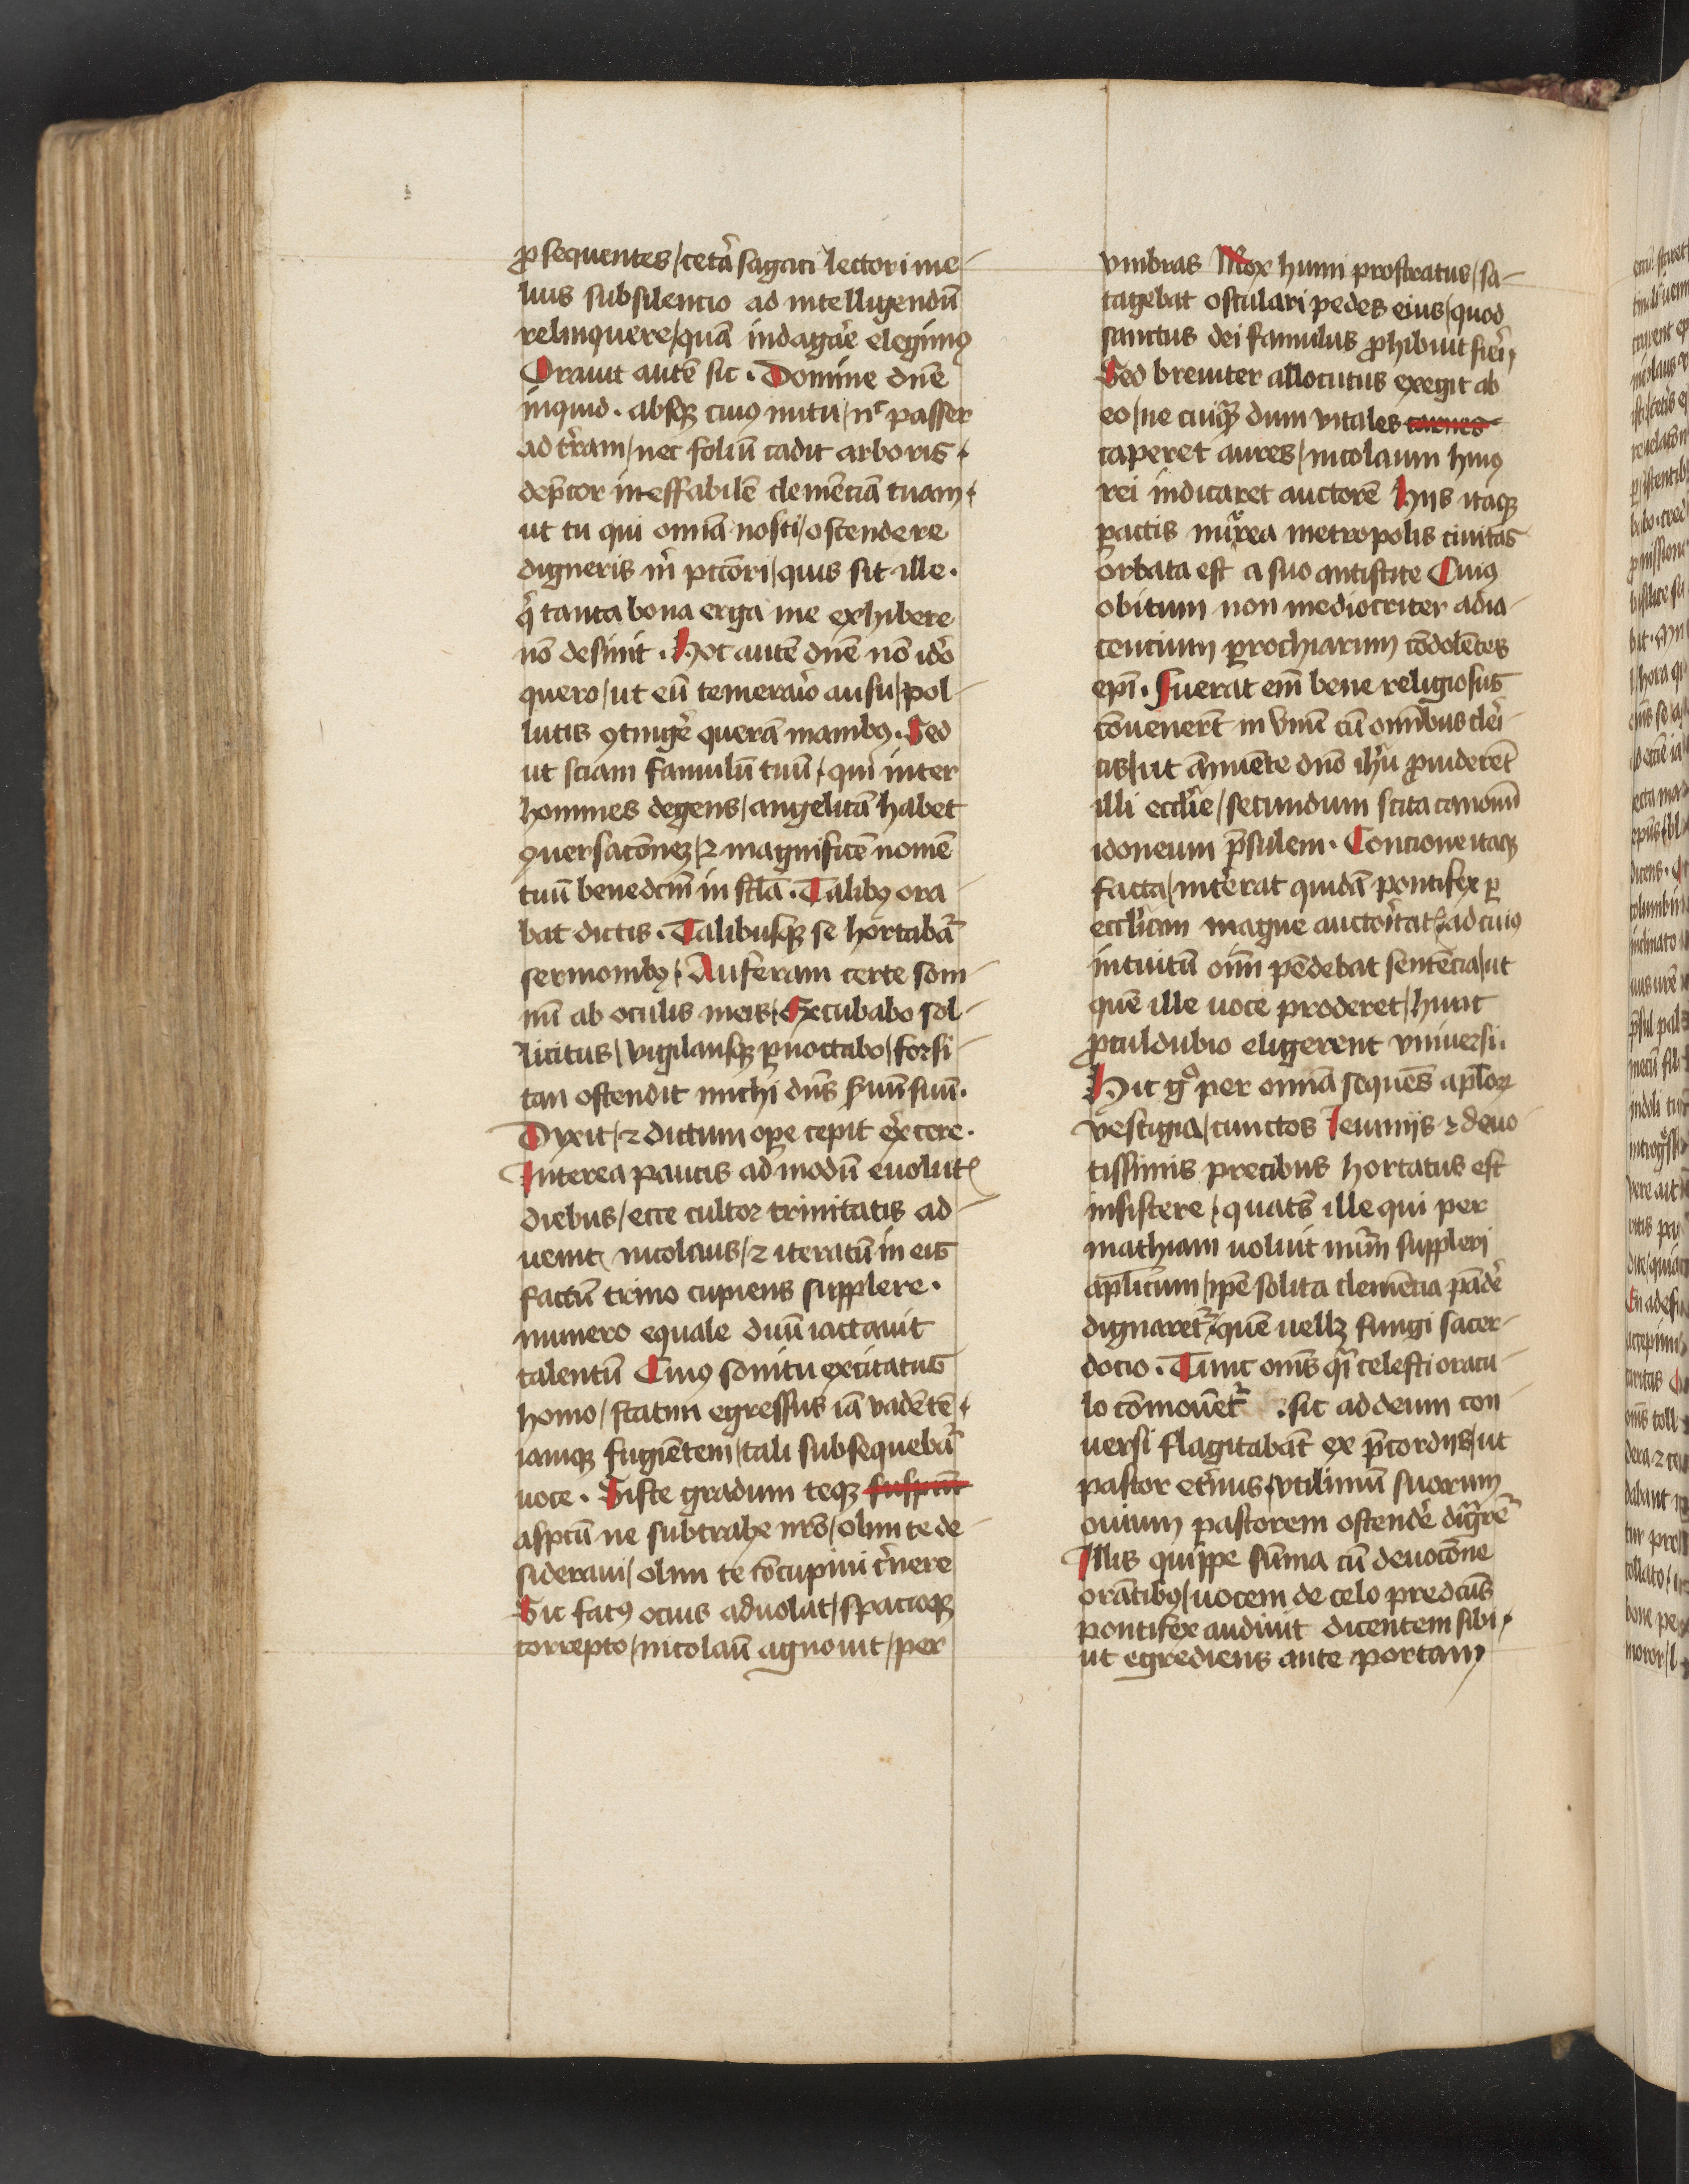 ꝓsequentes / cetꝰa sagaci lectori me-
lius subsilencio ad intelligendū
relinquere / quā indagar̄e elegimꝰ
Orauit autē sic . Domine dn̄e
inquid . absqꝫ cuiꝰ nutu / nͨ passer
ad tr̄ram / nec foliū cadit arboris .
dep̄cor ineffabilē clemēciā tuam .
ut tu qui om̄ia nosti / ostendere
digneris m̄ pccōri / quis sit ille .
q̄ tanta bona erga me exhibere
nō desinit . Hoc autē dn̄e nō idō
quero / ut eū temerar̄io ausu / pol-
lutis ꝯtinger̄ querā manibꝰ . Sed
ut sciam famulū tuū / qui inter
homines degens / angelicā habet
ꝯuersacōneꝫ / ⁊ magnificē nomē
tuū benedcm̄ in scl̄a . Talibꝰ ora-
bat dictis . Talibusqꝫ se hortabat᷑
sermonibꝰ . Auferam certe som-
nū ab oculis meis . Excubabo sol-
licitus / vigilansqꝫ ꝑnoctabo / forsi-
tan ostendit michi dn̄s s̄uū suū .
Dyxit / ⁊ dictum ope cepit ex̄cere .
Interea paucis ad modū euolutꝭ
diebus / ecce cultor trinitatis ad-
uenit nicolaus / ⁊ iteratū in eis
factū trino cupiens supplere .
numero equale duū iactauit
talentū Cuiꝰ sonitu excitatus
homo / statim egressus iā vadētē .
iamqꝫ fugiētem / tali subsequebat᷑
uoce . Siste gradum teqꝫ
aspctū ne subtrahe nr̄o / olim te de-
sideraui / olim te cōcupiui c̄nere
Sic fatꝰ ocius aduolat / spacioqꝫ
correpto / nicolaū agnouit / per
vmbras Mox humi prostratus / sa-
tagebat osculari pedes eius / quod
sanctus dei famulus ꝓhibuit fier̄i
Sed breuiter allocutus exegit ab
eo / ne cuiqꝫ dum vitales carnes
caperet aures / nicolaum huiꝰ
rei indicaret auctorē Hijs itaqꝫ
ꝑactis mirrea metropolis ciuitas
orbata est a suo antistite Cuiꝰ
obitum non mediocriter adia-
cencium ꝑrochiarum cōdolētes
ep̄i . Fuerat em̄ bene religiosus
cōuenerūt in vnū cū om̄ibus cler̄i-
cis / ut ānuente dn̄o ih̄u ꝓuiderēt
illi eccl̄ie / secundum scita canonū
idoneum p̄sulem . Concione itaqꝫ
facta / int̄erat quidā pontifex ꝑ
eccl̄iam magne auctor̄itatꝭ / ad cuiꝰ
intuitū oīm pēdebat sentēcia / ut
quē ille uoce proderet / hunc
ꝓculdubio eligerent vniuersi .
Hic gͦ per om̄ia sequēs ap̄loꝝ
vestigia / cunctos Ieiunijs ⁊ deuo-
tissimis precibus hortatus est
insistere / quatꝰ ille qui per
mathiam uoluit num̄ suppleri
ap̄licum / ip̄e solita clemēcia pādē
dignaret᷑ / quē uellꝫ fungi sacer-
docio . Tunc om̄s qͣi celesti oracu-
lo cōmouēt᷑ . sic ad deum con-
uersi flagitabāt ex p̄cordijs / ut
pastor et̄nus / vtilimū suorum
ouium pastorem ostendē dignar̄et᷑
Illis quippe sūma cū deuocōne
orātibꝰ / uocem de celo predcūs
pontifex audiuit dicentem sibi .
ut egrediens ante portam